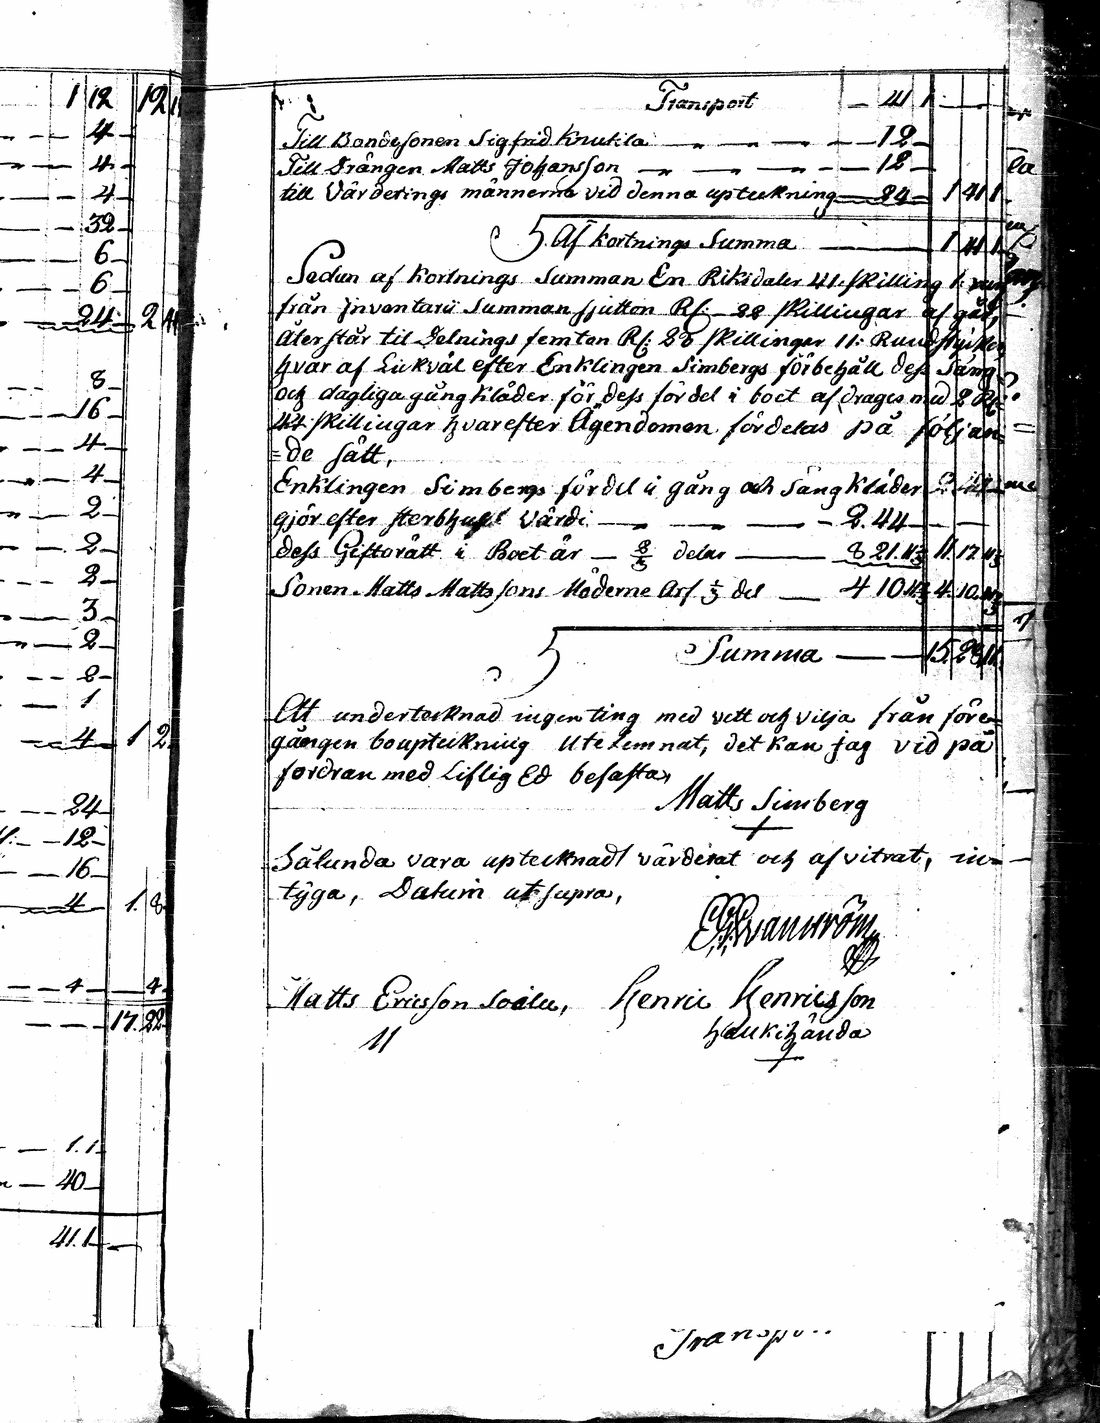 1 12 12
4
4
4
32
6
6
24 2
8
16
4
4
2
2
2
3
2
2
1
4 1 2
24
12
16
4 1. 8
4 4
17. 22
1.1
40
41.1
Transport — 41 1
Till Bondesonen Sigfrid Knuttila — 12
Till Drängen Matts Johansson — 12
till Värderings männerne vid denna upteckning 24 1 41 1
Afkortnings Summa 1 41 1
Sedan afkortnings Summan En Riksdaler 41. skilling 1.
från Inventarii Summan sjutton Rd: 22 skillingar afgåt,
Återstår til Delnings femton Rd: 28 skillingar 11: Rundstycken
hvar af Likväl efter Enklingen Simbergs förbehåll dess Säng
och dagliga gångkläder för dess fördel i boet afdrages med 2 Rd:
44 skillingar hvarefter Ägendomen fördelas på följan=
=de sätt,
Enklingen Simbergs fördel i gång och Sängkläder 2. 44
gjör efter sterbhuset värdi 2.44
dess Giftorätt i Boet är — 2/3 delar — 8 21. 11. 17.
Sonen Matts Mattssons Möderne Arf 1/3 del — 4 10 4. 10.
Summa — 15. 28 11
Att undertecknad ingenting med vett och vilja från före=
gången bouptekning utelemnat, det kan jag vid på
fordran med Liflig Ed befästa,
Matts Simberg
Sålunda vara uptecknadt värderat och afvitrat, in=
tyga, Datum ut supra,
Matts Ericsson Henric Henricsson
Haukihända
Transpo